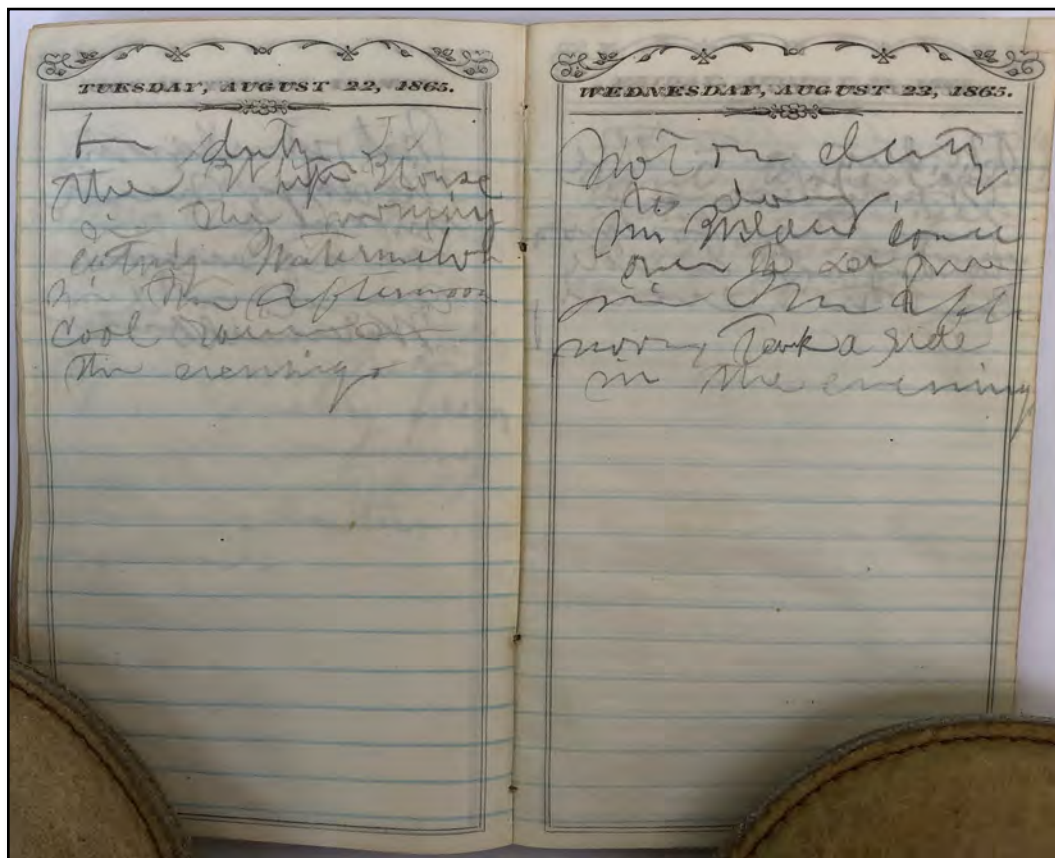 TUESDAY, AUGUST 22, 1865.
duty
the White House
in the morning
eating Watermelon
in the afternoon
Cool
the evening
WEDNESDAY, AUGUST 23, 1865.
Not on duty
to day
come
over to see me
in the aft
noon, Took a ride
in the evening